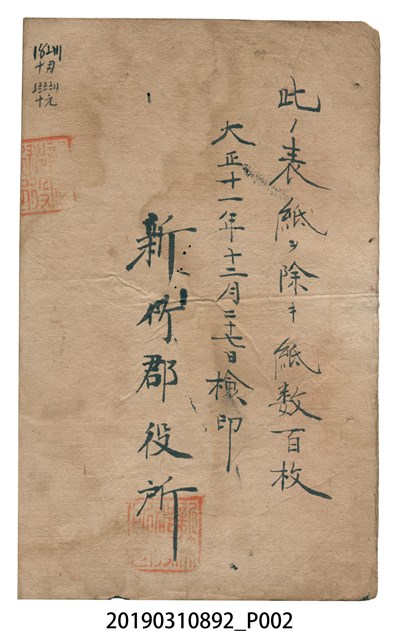 此ノ表紙ヲ除キ紙数百枚
大正十一年十二月二十七日檢印
新竹郡役所
20190310892_P002